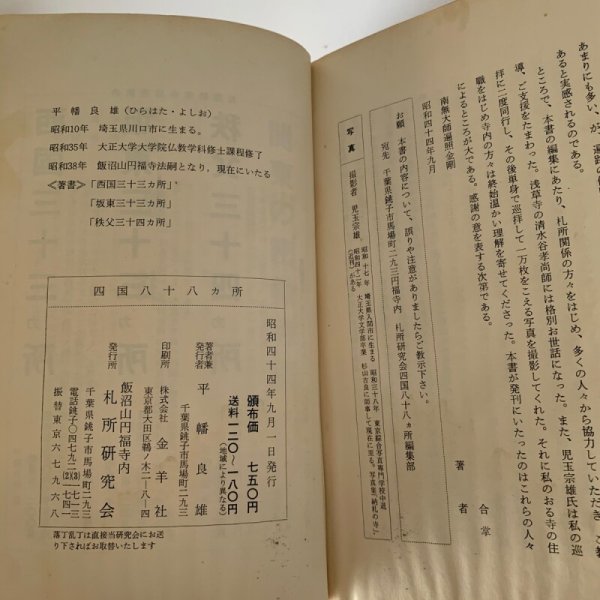 あまりにも多い、が、遍路の
あると実感されるのである。
ところで、本書の編集にあたり、札所関係の方々をはじめ、多くの人々から協力していただき
導、ご支援をたまわった。浅草寺の清水谷孝尚師には格別お世話になった。また、児玉宗雄氏は私の巡
拝に二度同行し、その後単身で巡拝して一万枚をこえる写真を撮影してくれた。それに私のおる寺の住
職をはじめ寺内の方々は終始温かい理解を寄せてくださった。本書が発刊にいたったのはこれらの人々
によるところが大である。感謝の意を表する次第である。
合掌
南無大師遍照金剛
昭和四十四年九月
著者
お願 本書の内容について、誤りや注意がありましたらご教示下さい。
宛先 千葉県銚子市馬場町二九三円福寺内 札所研究会四国八十八ヵ所編集部
写真 撮影者 児玉宗雄
昭和十七年 埼玉県入間市に生まる 昭和三八年 東京綜合写真専門学校中退
昭和四十二年 大正大学文学部卒業 杉山吉良に師事して現在に至る。写真集「納札の寺」
(近刊)がある
平幡良雄(ひらはた・よしお)
昭和10年 埼玉県川口市に生まる。
昭和35年 大正大学大学院仏教学科修士課程修了
昭和38年 飯沼山円福寺法嗣となり、現在にいたる
≪著書≫「西国三十三カ所」
「坂東三十三カ所」
「秩父三十四カ所」
四国八十八ヵ所
昭和四十四年九月一日発行
頒布価 七五〇円
送料 一二〇〜一八〇円
(地域により異なる)
著者兼発行者 平幡良雄
千葉県銚子市馬場町二九三
印刷所 株式会社 金羊社
東京都大田区鵜ノ木二ー八ー四
発行所 飯沼山円福寺内
札所研究会
千葉県銚子市馬場町二九三
電話銚子〇四七九二(2)(3)一七四一
振替東京六七九六八
落丁乱丁は直接当研究会にお送
り下さればお取替いたします